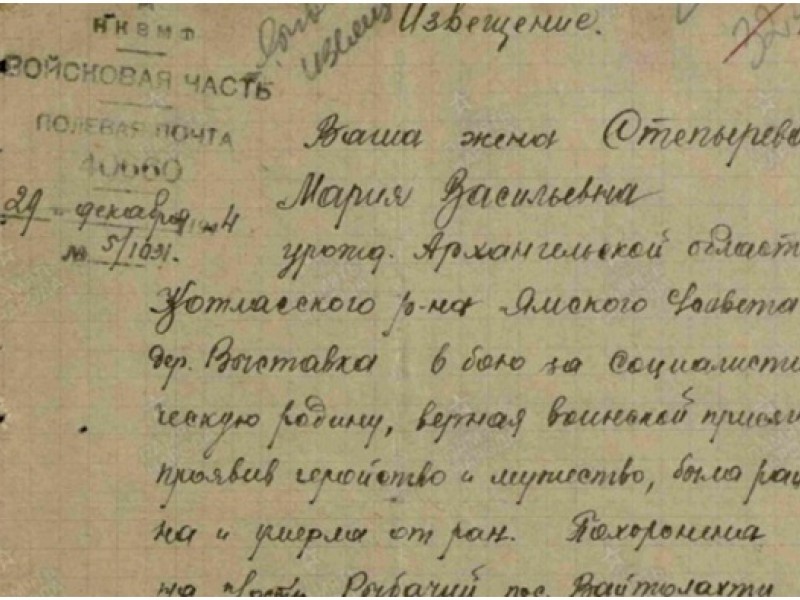 Извещение.
НКВМФ
ВОЙСКОВАЯ ЧАСТЬ
ПОЛЕВАЯ ПОЧТА
40660
29 декабря 1944
№ 5/1031.
Ваша жена Степырева
Мария Васильевна
урожд. Архангельской област
Котласского р-на Ямского с/совета
дер. Выставка в бою за социалисти
ческую родину, верная воинской прися
проявив геройство и мужество, была ра
на и умерла от ран. Похоронена
на Рыбачий пос. Вайтолахти